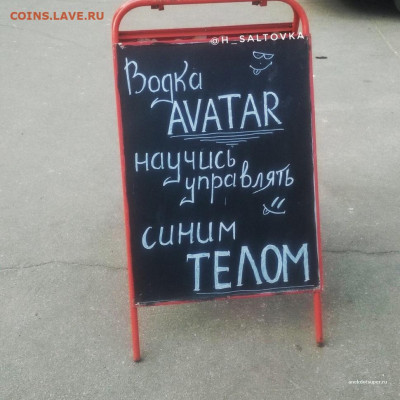 COINS.LAVE.RU
@H_SALTOVKA
Водка
AVATAR
научись
управлять
синим
ТЕЛОМ